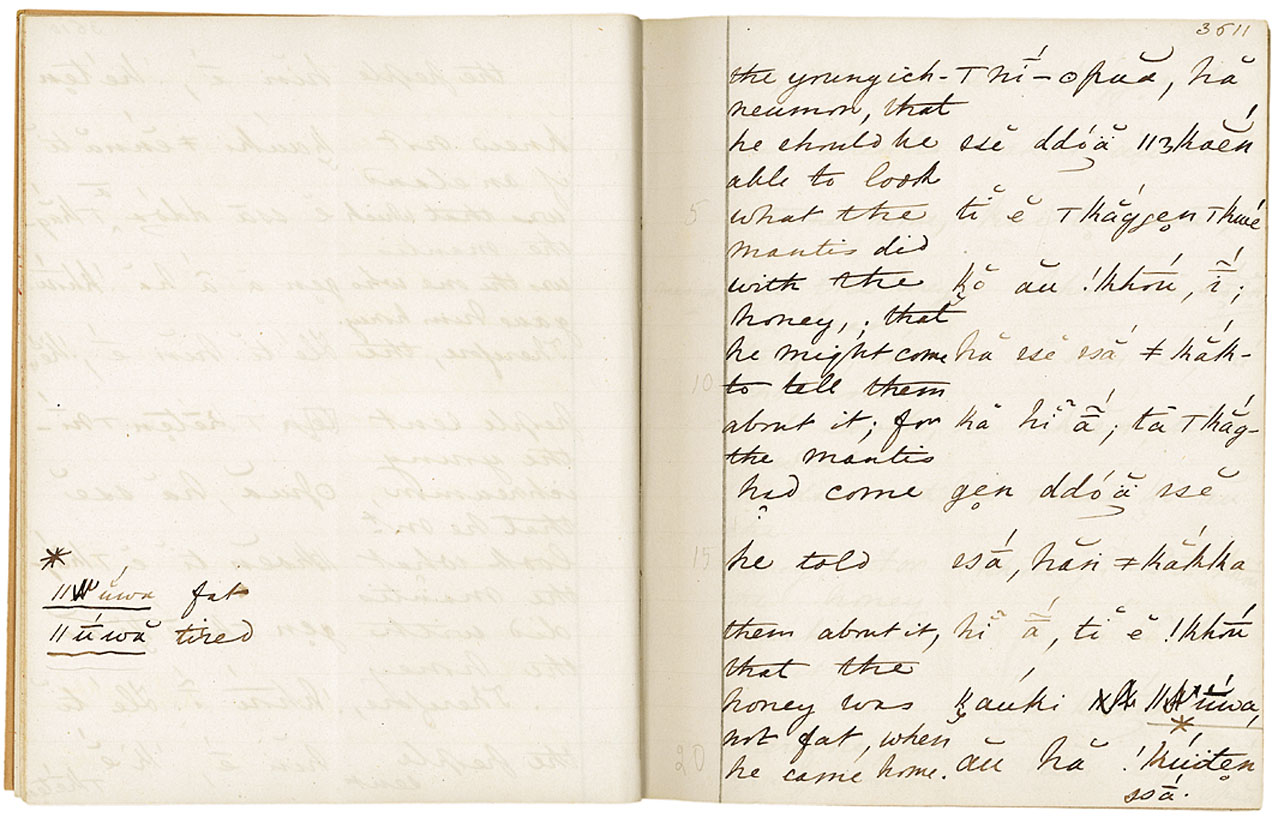 *
ǁúwa fat
ǁúwă tired
3611
the young ich- ꞱnĪ́-ʘpuă, hă
neumon, that
he should be ssĕ ddóä̆ ǁ
able to look
5 what the tĭ ĕ Ʇkăggen̥ Ʇkué
mantis did
with the k̬ŏ au !khóu, ī̃́;
honey, ; that
he might come hă ssĕ ssá ǂkăk-
10 to tell them
about it; for kă hĭ ã̄́; tā Ʇkăg-
the mantis
had come gen̥ ddóä̆ ssĕ
15 he told ssá, hăn ǂkăkka
them about it, hĭ ã̄́, tĭ ĕ !khóu
that the
honey was k̬aúki ǁúwa,
*
not fat, when
20 he came home. au hă !kúïten̥
ssā́.